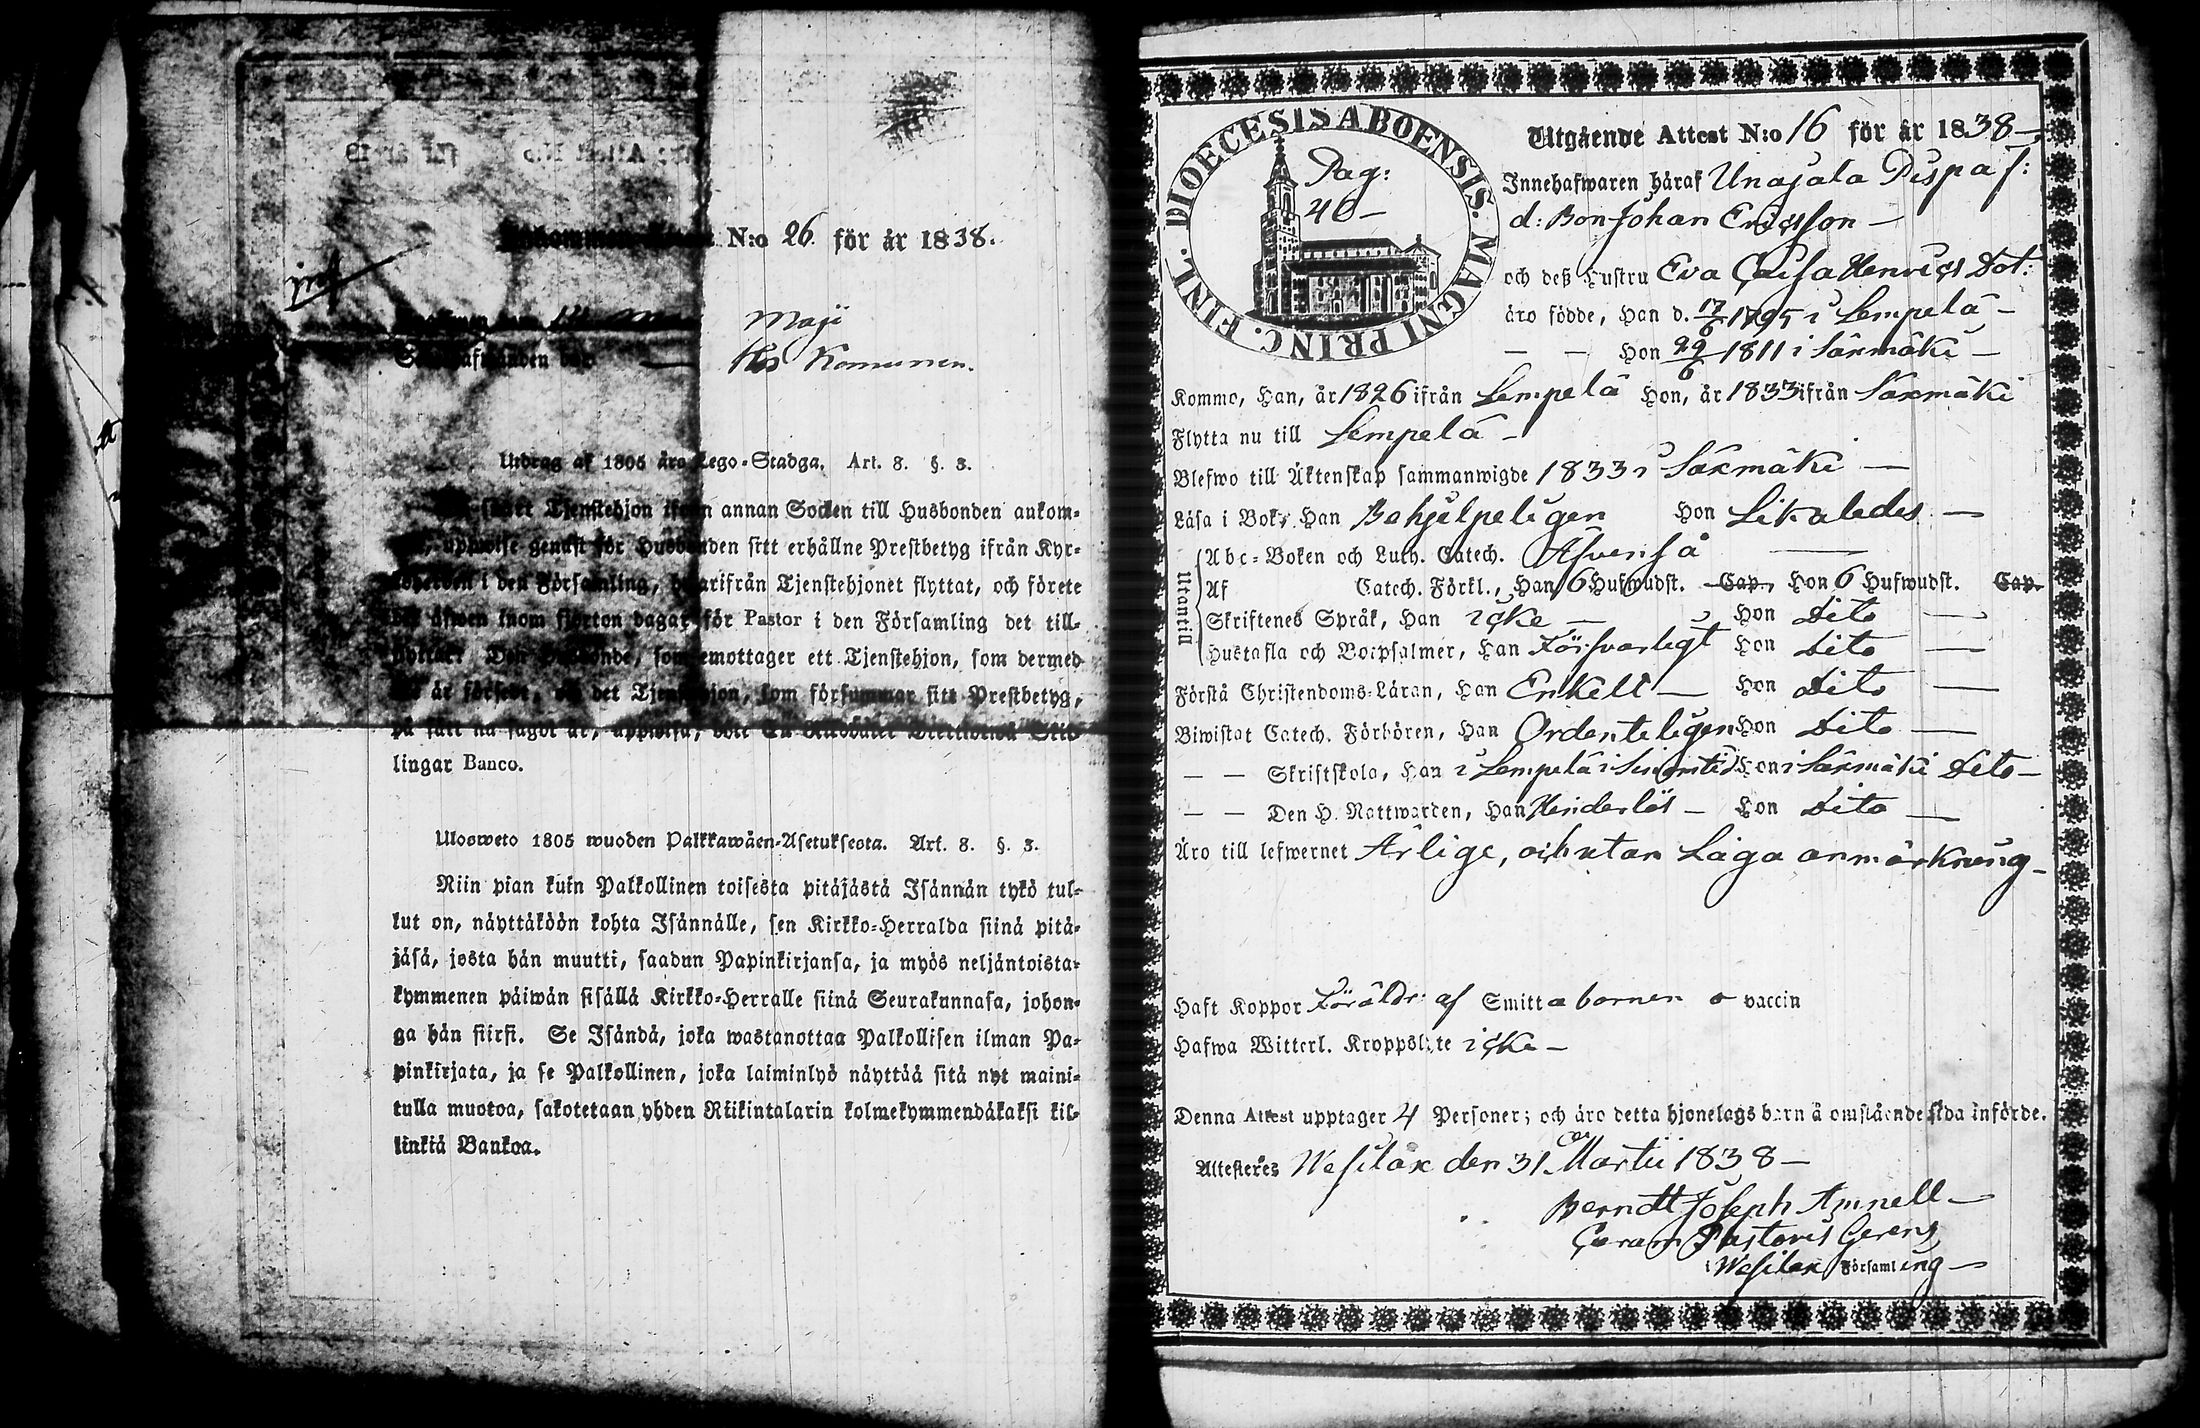 N:o 26. för år 1838.
Maji
Kommunen.
Utdrag af 1805 års Lego-Stadga. Art. 8. §. 3.
Tjenstehjon ifrån annan Socken till Husbonden ankom-
uppwise genast för Husbonden sitt erhållne Prestbetyg ifrån Kyr-
i den Församling, hwarifrån Tjenstehjonet flyttat, och förete
äfwen inom fjorton dagar för Pastor i den Församling det till-
emottager ett Tjenstehjon, som dermed
är försedt, det Tjenstehjon, som försummar sitt Prestbetyg,
på sätt nu sagdt är, uppwisa, böte
lingar Banco.
Ulosweto 1805 wuoden Palkkawäen-Asetuksesta. Art. 8. §. 3.
Niin pian kuin Palkollinen toisesta pitäjästä Isännän tykö tul-
lut on, näyttäköön kohta Isännälle, sen Kirkko-Herralda siinä pitä-
jäsä, josta hän muutti, saadun Papinkirjansa, ja myös neljäntoista-
kymmenen päiwän sisällä Kirkko-Herralle siinä Seurakunnasa, johon-
ga hän siirsi. Se Isändä, joka wastanottaa Palkollisen ilman Pa-
pinkirjata, ja se Palkollinen, joka laiminlyö näyttää sitä nyt maini-
tulla muotoa, sakotetaan yhden Riikintalarin kolmekymmendäkaksi kil-
linkiä Bankoa.
DIOECESIS ABOENSIS. MAGNI PRINC. FINL.
Pag:
40 -
Utgående Attest N:o 16 för år 1838 -
Innehafwaren häraf Unajala Pispa f:
d: Bon Johan Ericsson -
och deß Hustru Eva Caisa Henrics Dot:
äro födde, Han d. 17/6 1795 i Lempelä -
— — Hon 29/6 1811 i Säxmäki -
Kommo, Han, år 1826 ifrån Lempelä Hon, år 1833 ifrån Säxmäki
Flytta nu till Lempelä -
Blefwo till Äktenskap sammanwigde 1833 i Säxmäki —
Läsa i Bok, Han Behjelpeligen Hon Likaledes —
Utantill
Abc-Boken och Luth. Catech. Äfvenså —
Af Catech. Förkl., Han 6 Hufwudst. Cap., Hon 6 Hufwudst. Cap.
Skriftenes Språk, Han icke — Hon Dito —
Hustafla och Botpsalmer, Han Försvarligt Hon Dito —
Förstå Christendoms-Läran, Han Enkelt — Hon Dito —
Biwistat Catech. Förhören, Han Ordenteligen Hon Dito —
— — Skriftskola, Han i Lempelä i Sinom tid Hon i Säxmäki Dito -
— — Den H. Nattwarden, Han Hinderlös - Hon Dito —
Äro till lefwernet Ärlige, och utan Laga anmärkning -
Haft Koppor Föräldr: af Smitta barnen vaccin
Hafwa Witterl. Kroppslyte icke -
Denna Attest upptager 4 Personer; och äro detta hjonelags barn å omstående sida införde.
Attesteres Wesilax den 31 Martii 1838 -
Berndt Joseph Amnell -
Curam Pastoris Gerens
i Wesilax Församling -